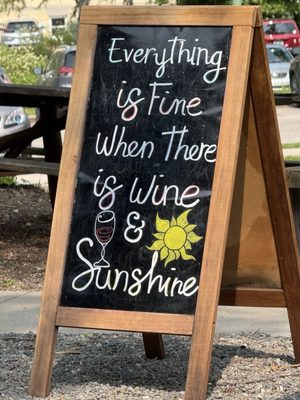 Everything
is Fine
When There
is Wine
&
Sunshine